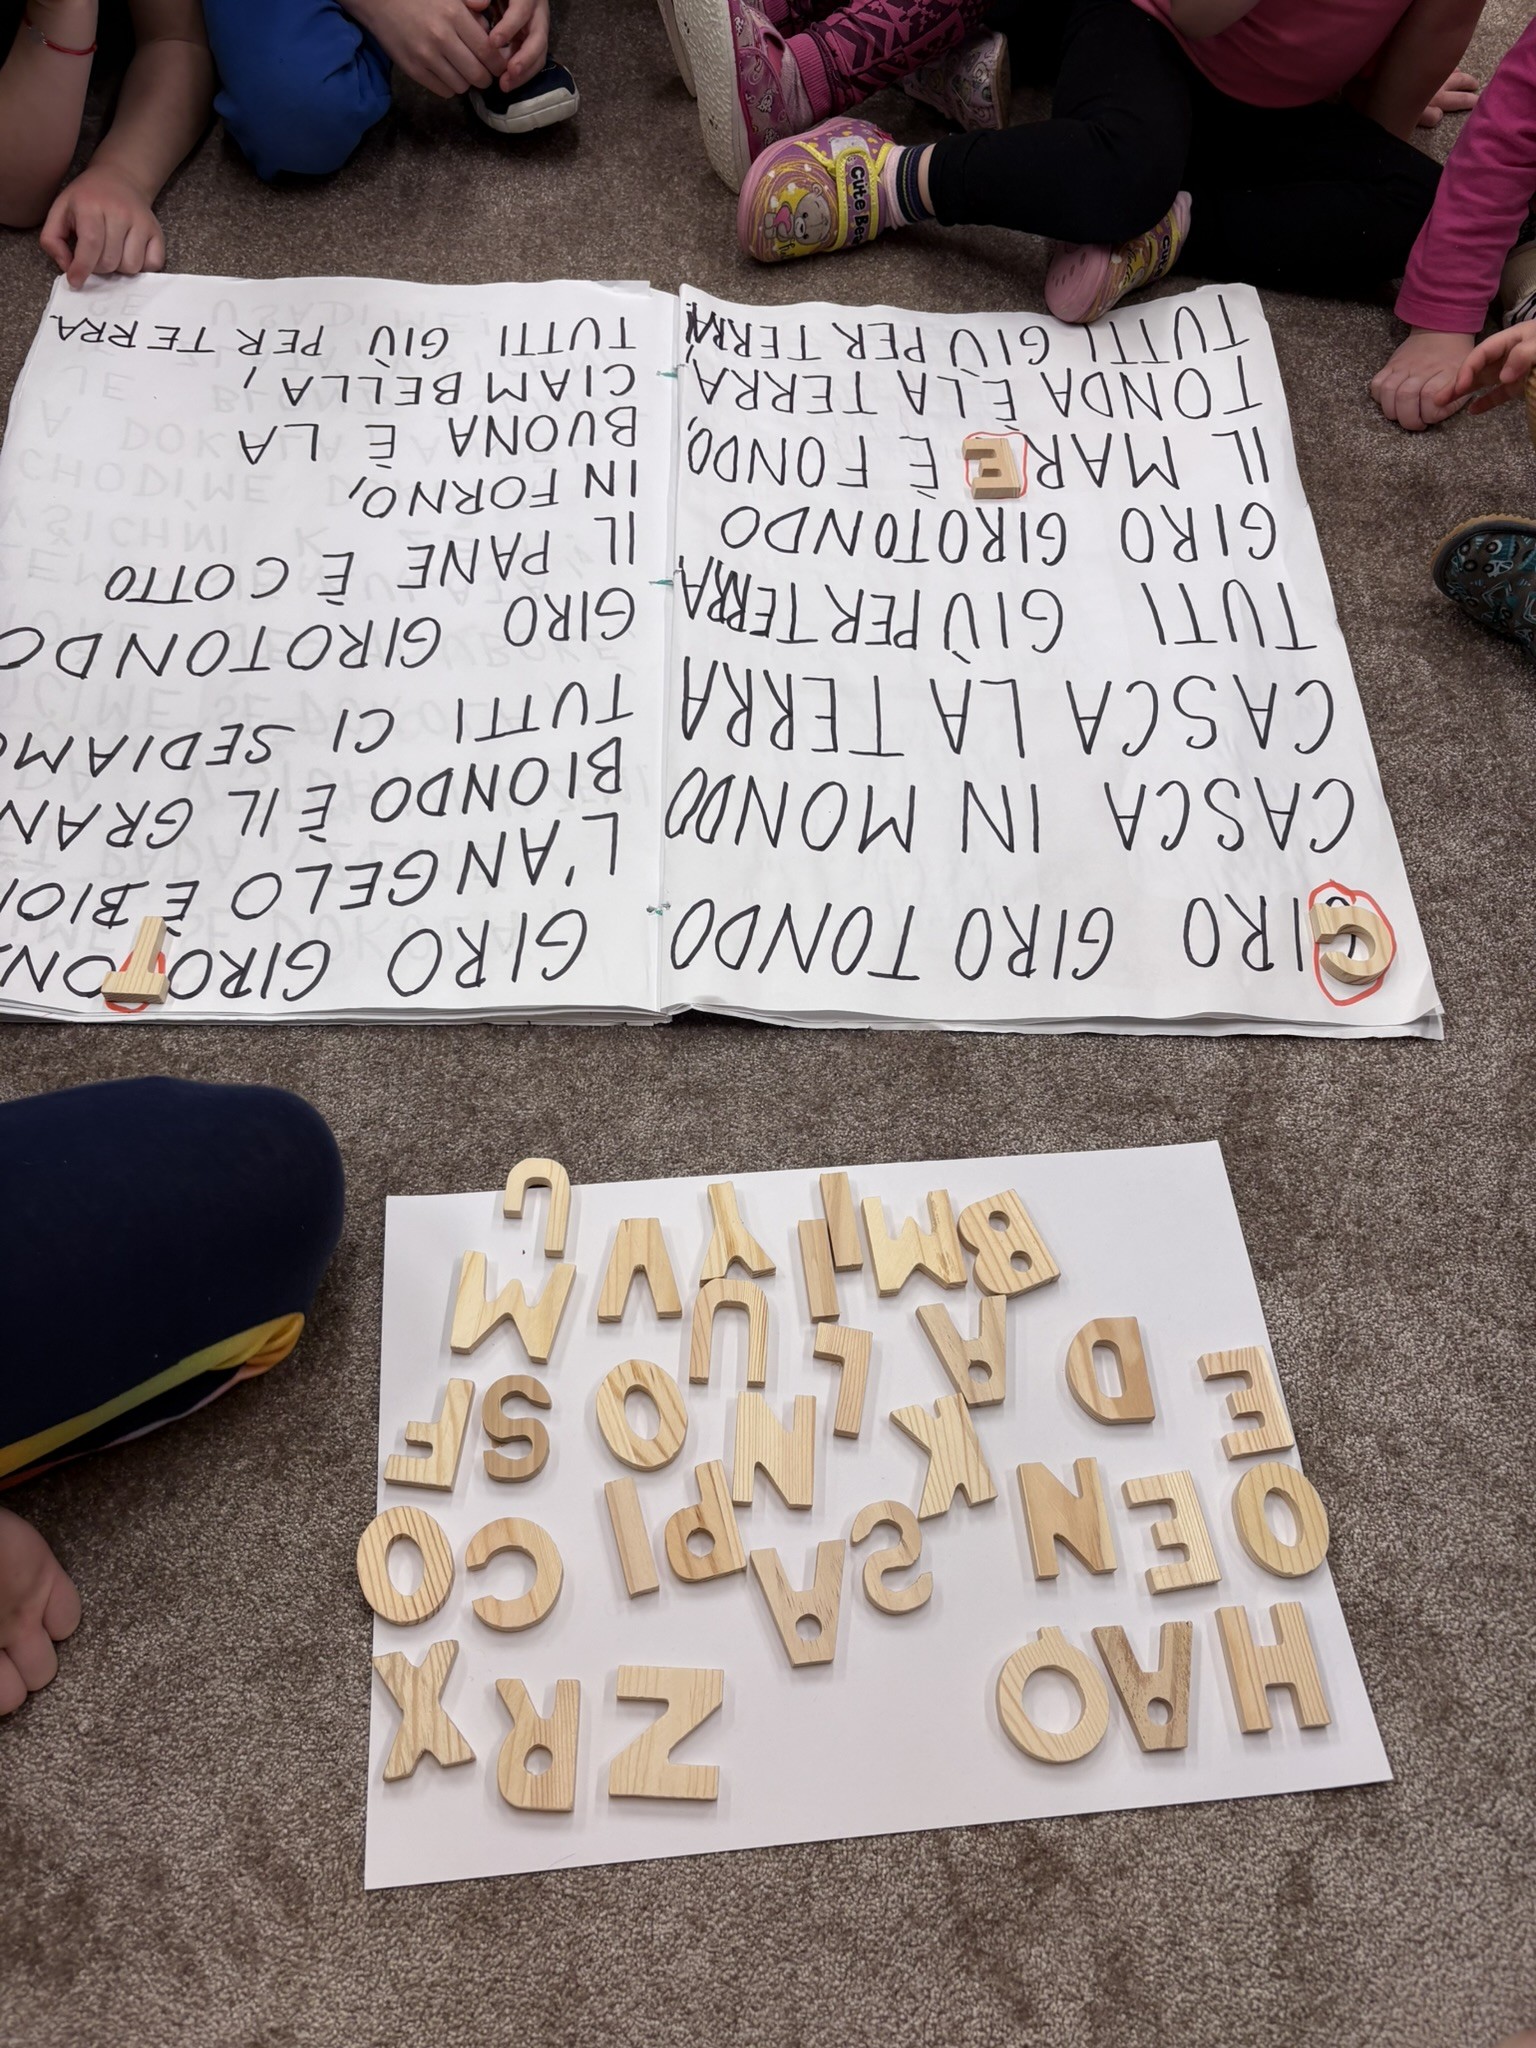 GIRO GIRO TONDO
CASCA IN MONDO
CASCA LA TERRA
TUTI GIÙ PER TERRA
GIRO GIROTONDO
IL MARE È FONDO,
TONDA È LA TERRA,
TUTTI GIÙ PER TERRA!
GIRO GIROTON
L'ANGELO È BIO
BIONDO È IL GRAN
TUTTI CI SEDIAMO
GIRO GIROTONDO
IL PANE È COTTO
IN FORNO,
BUONA È LA
CIAMBELLA,
TUTTI GIÙ PER TERRA.
H A Q Z R X
O E N S A P I C O
E D K N O S F
A L U M
B M I I Y V J
Cute Bea